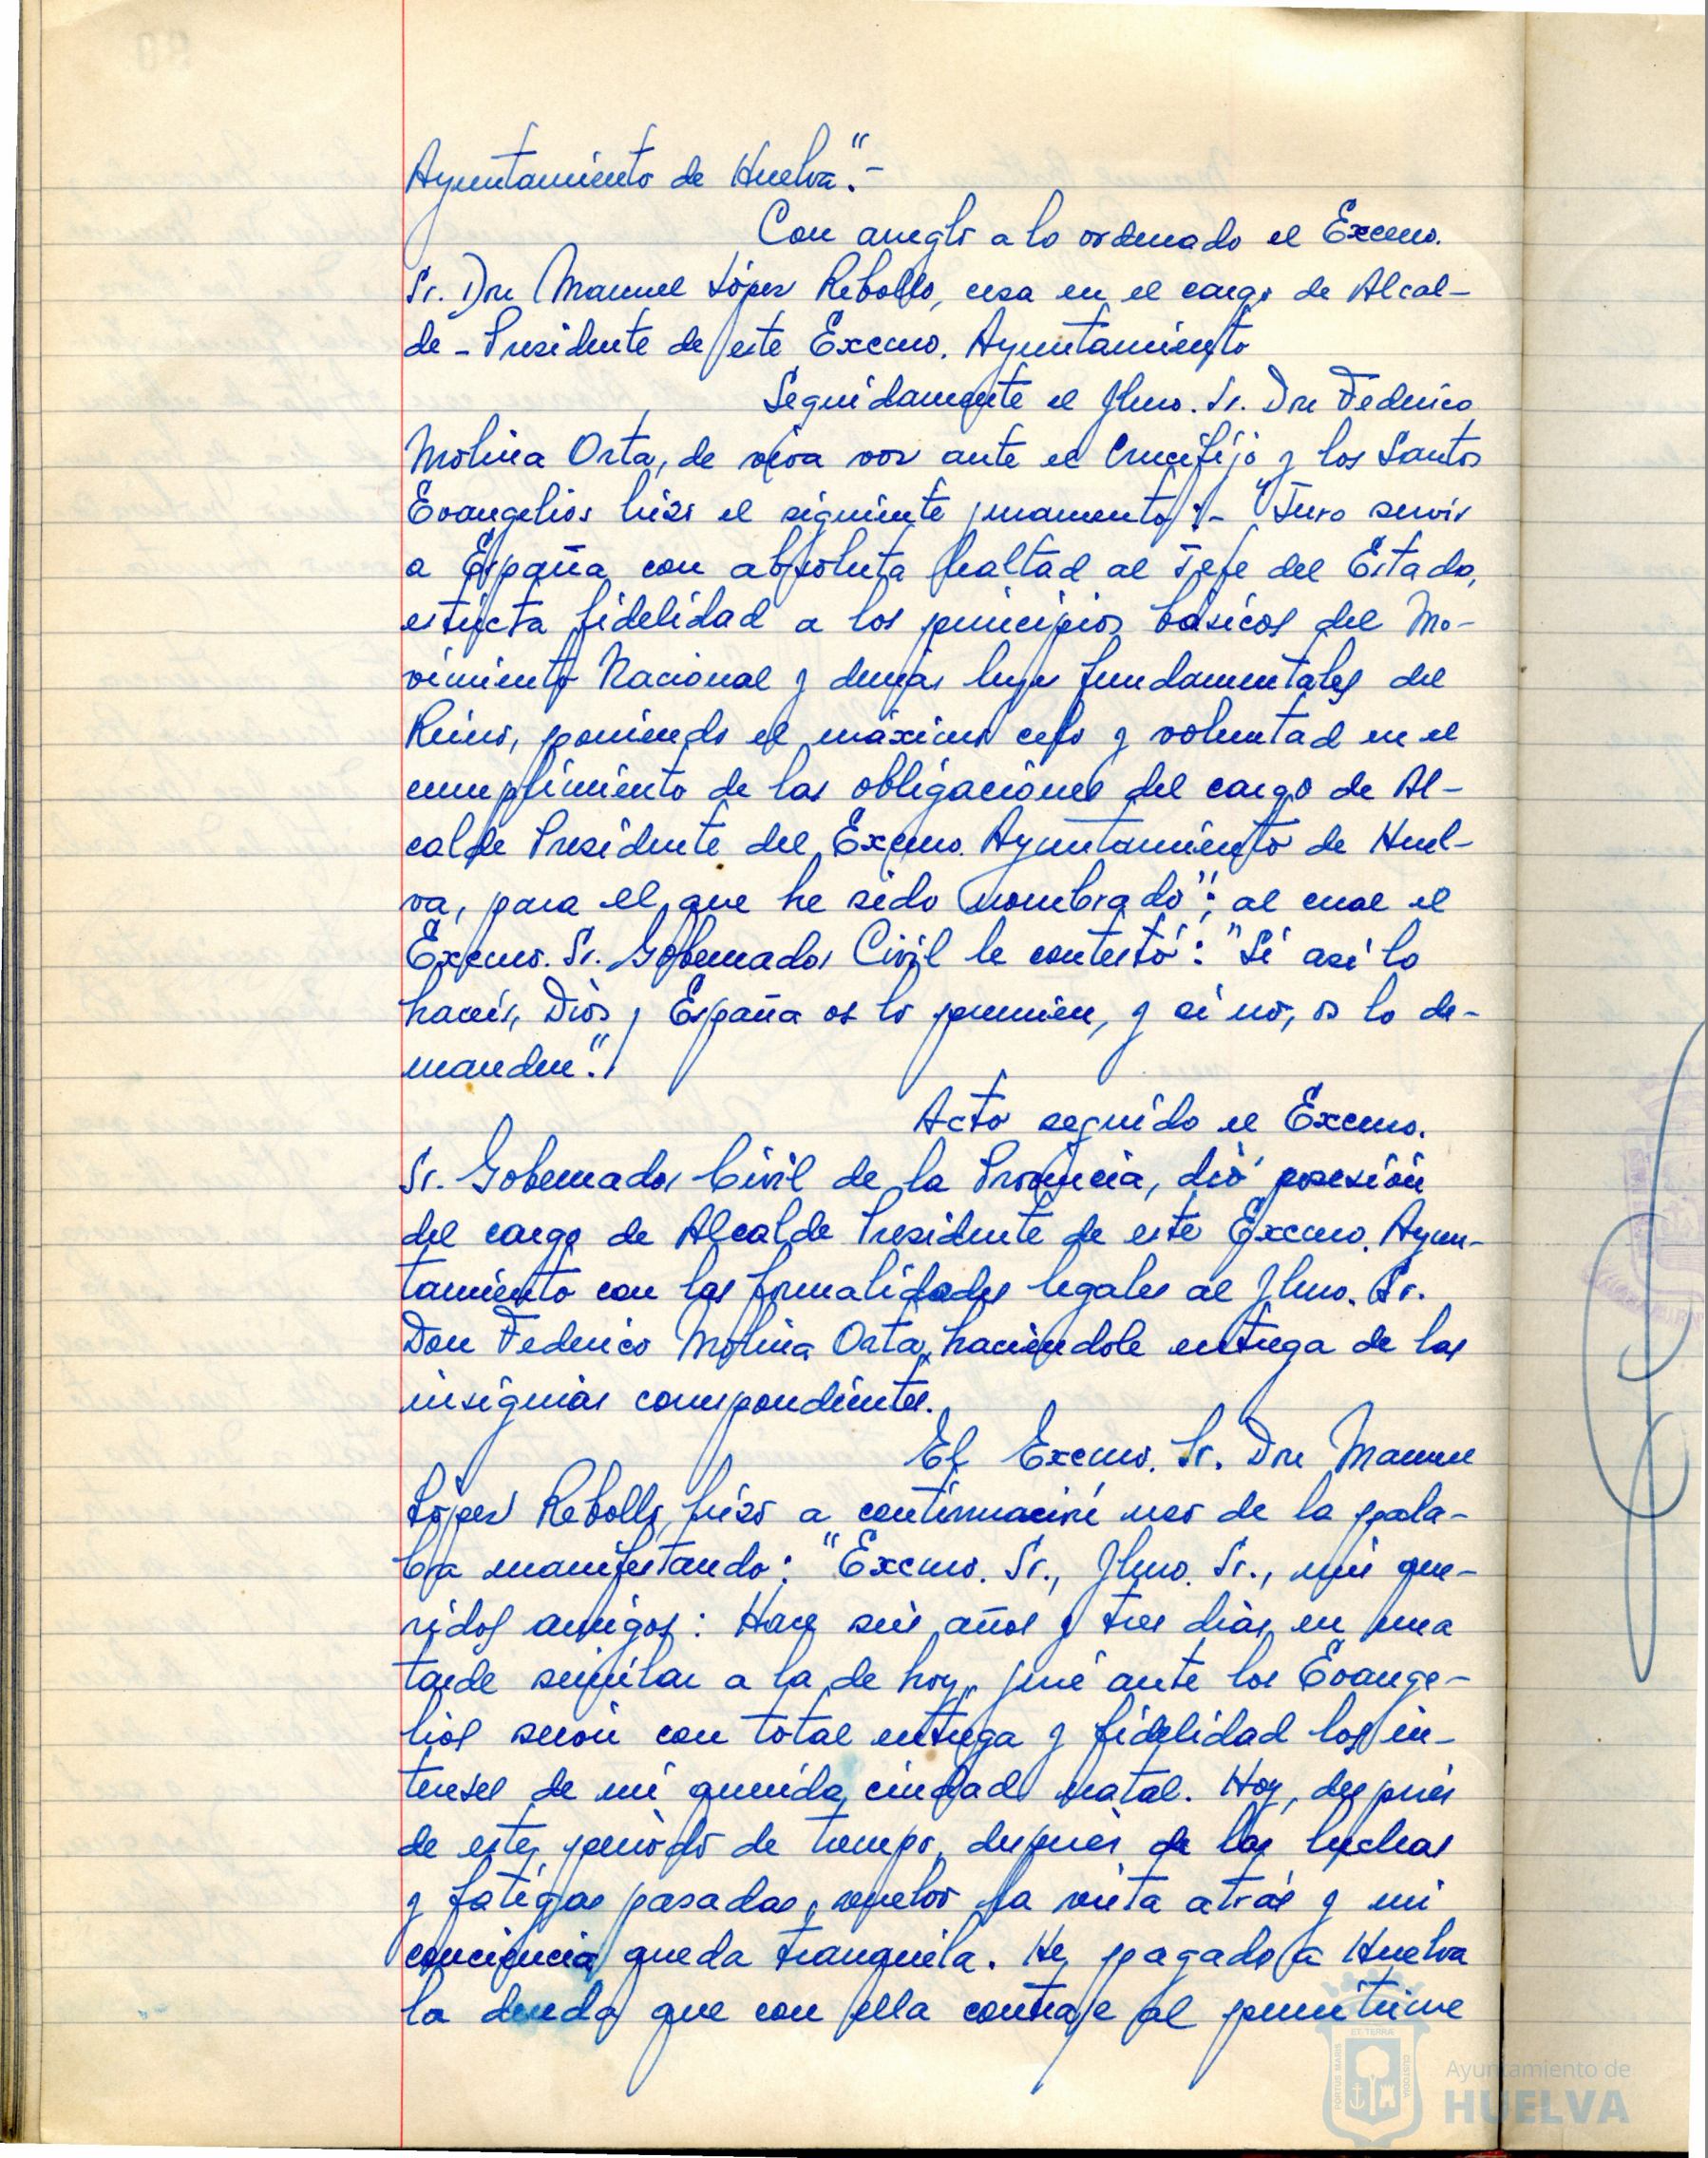 Ayuntamiento de Huelva".-
Con arreglo a lo ordenado el Excmo.
Sr. Don Manuel López Rebollo, cesa en el cargo de Alcal-
de-Presidente de este Excmo. Ayuntamiento
Seguidamente el Ilmo. Sr. Don Federico
Molina Orta, de viva voz ante el Crucifijo y los Santos
Evangelios hizo el siguiente juramento:- "Juro servir
a España con absoluta lealtad al Jefe del Estado,
estricta fidelidad a los principios básicos del Mo-
vimiento Nacional y demás leyes fundamentales del
Reino, poniendo el máximo celo y voluntad en el
cumplimiento de las obligaciones del cargo de Al-
calde Presidente del Excmo. Ayuntamiento de Huel-
va, para el que he sido nombrado"; al cual el
Excmo. Sr. Gobernador Civil le contestó: "Si así lo
hacéis, Dios y España os lo premien, y si no, os lo de-
manden".
Acto seguido el Excmo.
Sr. Gobernador Civil de la Provincia, dió posesión
del cargo de Alcalde Presidente de este Excmo. Ayun-
tamiento con las formalidades legales al Ilmo. Sr.
Don Federico Molina Orta, haciéndole entrega de las
insignias correspondientes.
El Excmo. Sr. Don Manuel
López Rebollo, hizo a continuación uso de la pala-
bra manifestando: "Excmo. Sr., Ilmo. Sr., mis que-
ridos amigos: Hace seis años y tres días, en una
tarde similar a la de hoy, juré ante los Evange-
lios servir con total entrega y fidelidad los in-
tereses de mi querida ciudad natal. Hoy, después
de este periodo de tiempo, después de las luchas
y fatigas pasadas, vuelvo la vista atrás y mi
conciencia queda tranquila. He pagado a Huelva
la deuda que con ella contraje al permitirme
ET TERRAE
PORTUS MARIS
CUSTODIA
Ayuntamiento de
HUELVA